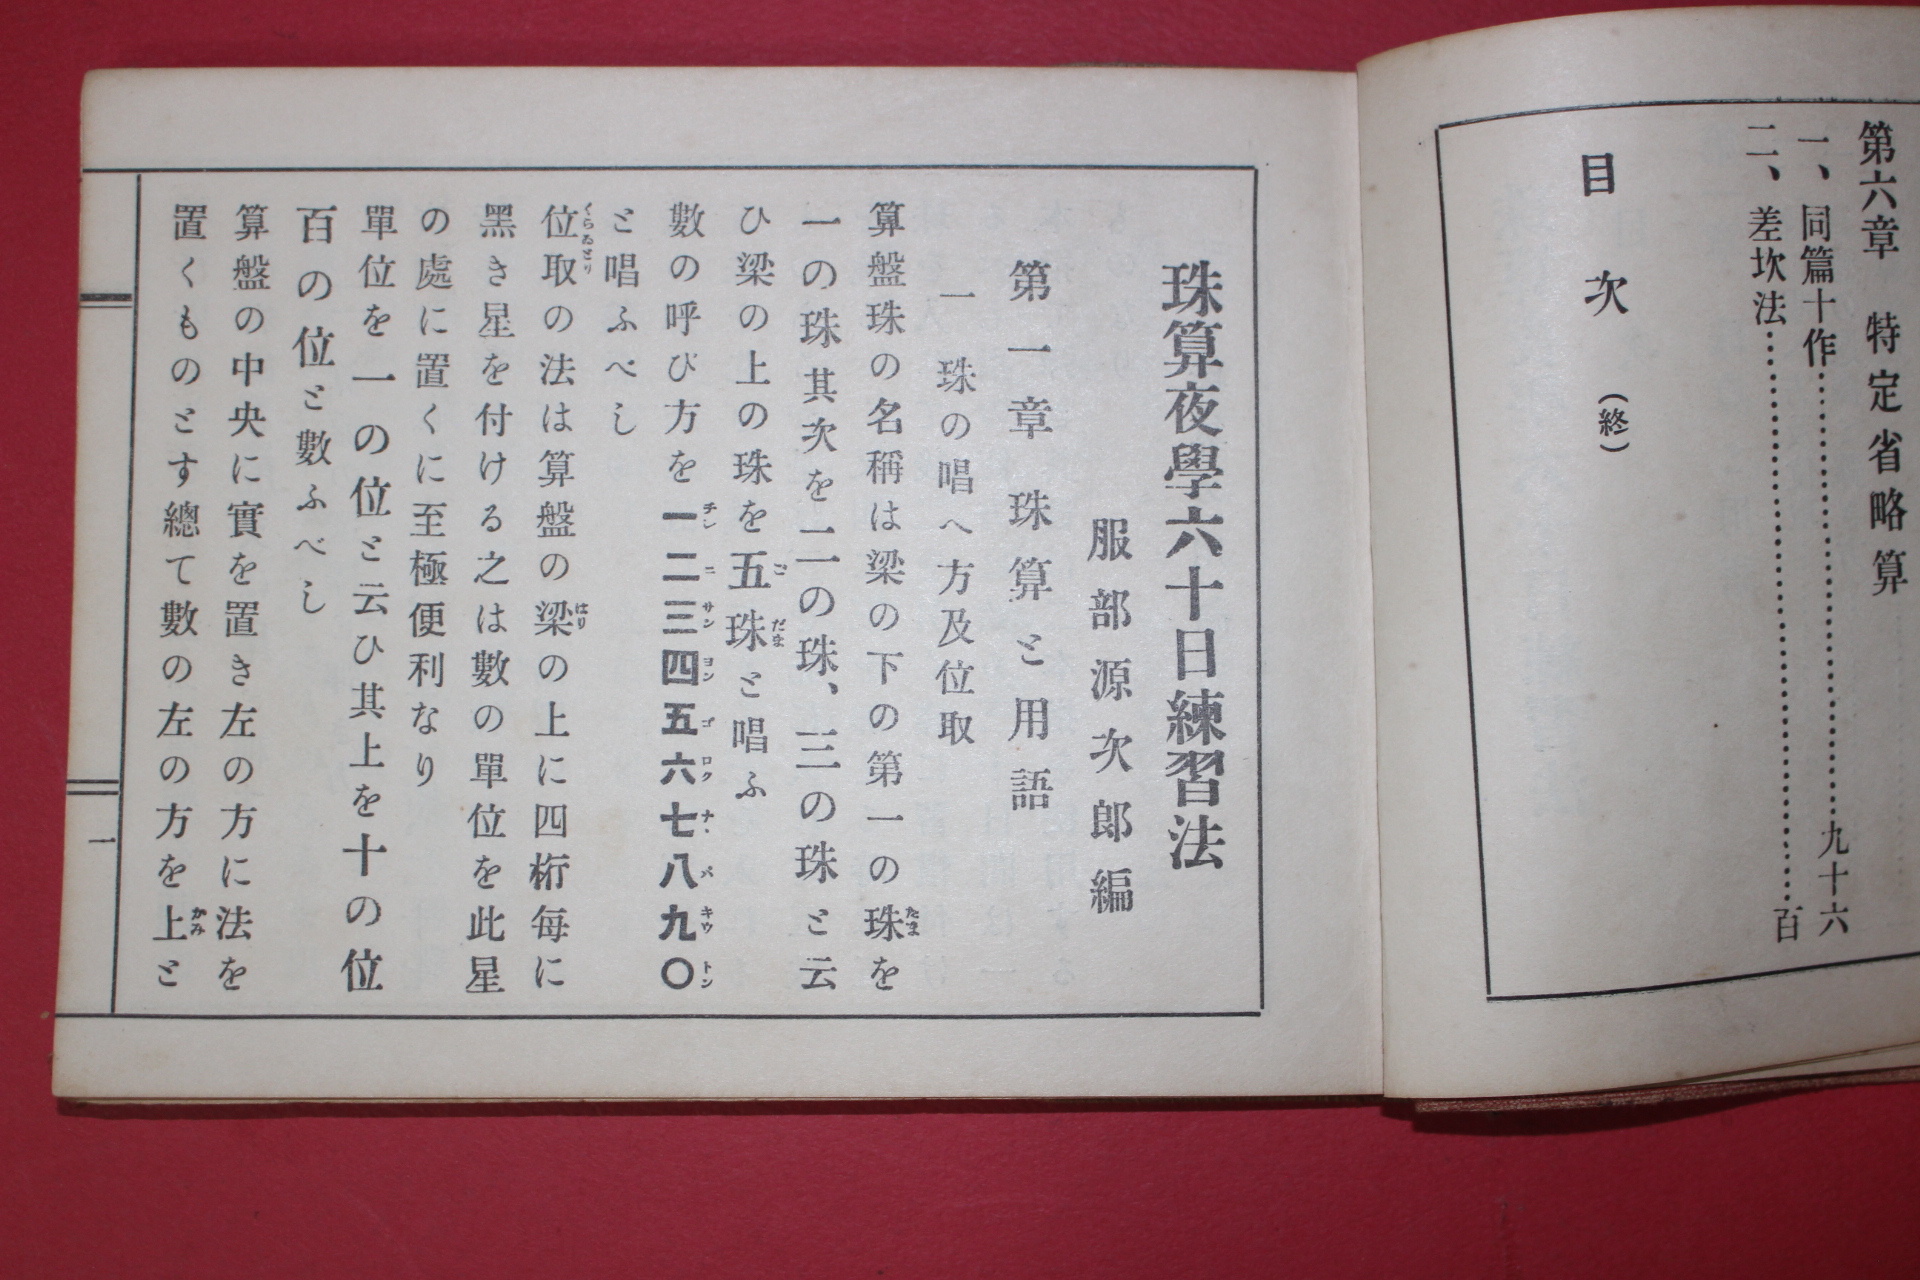 第六章　特定省略算
一、同篇十作……………………九十六
二、差坎法……………………百
目次（終）
珠算夜學六十日練習法
服部源次郎編
第一章　珠算と用語
一　珠の唱へ方及位取
算盤珠の名稱は梁の下の第一の珠を
一の珠其次を二の珠、三の珠と云
ひ梁の上の珠を五珠と唱ふ
數の呼び方を一二三四五六七八九〇
と唱ふべし
位取の法は算盤の梁の上に四桁每に
黑き星を付ける之は數の單位を此星
の處に置くに至極便利なり
單位を一の位と云ひ其上を十の位
百の位と數ふべし
算盤の中央に實を置き左の方に法を
置くものとす總て數の左の方を上と
一